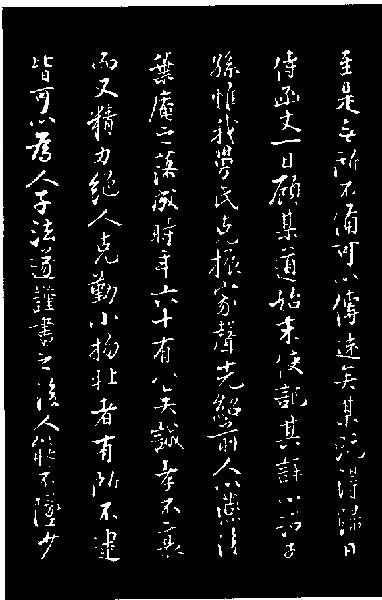 至是無所不備可以傳遠矣某既得歸日
侍函丈一日顧某道始末使記其詳以詔子
孫惟我學民克振家聲光紹前人以葉
葉庵之落成時年六十有八矣誠孝不衰
而又精力絕人克勤小物壯者有所不逮
皆可以為人子法道謹書之後人能不墜